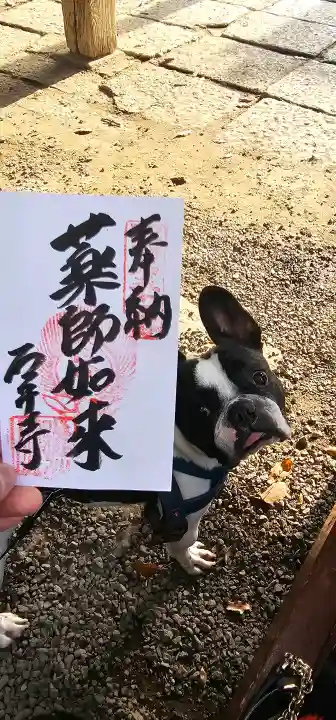 奉納
薬師如来
石手寺